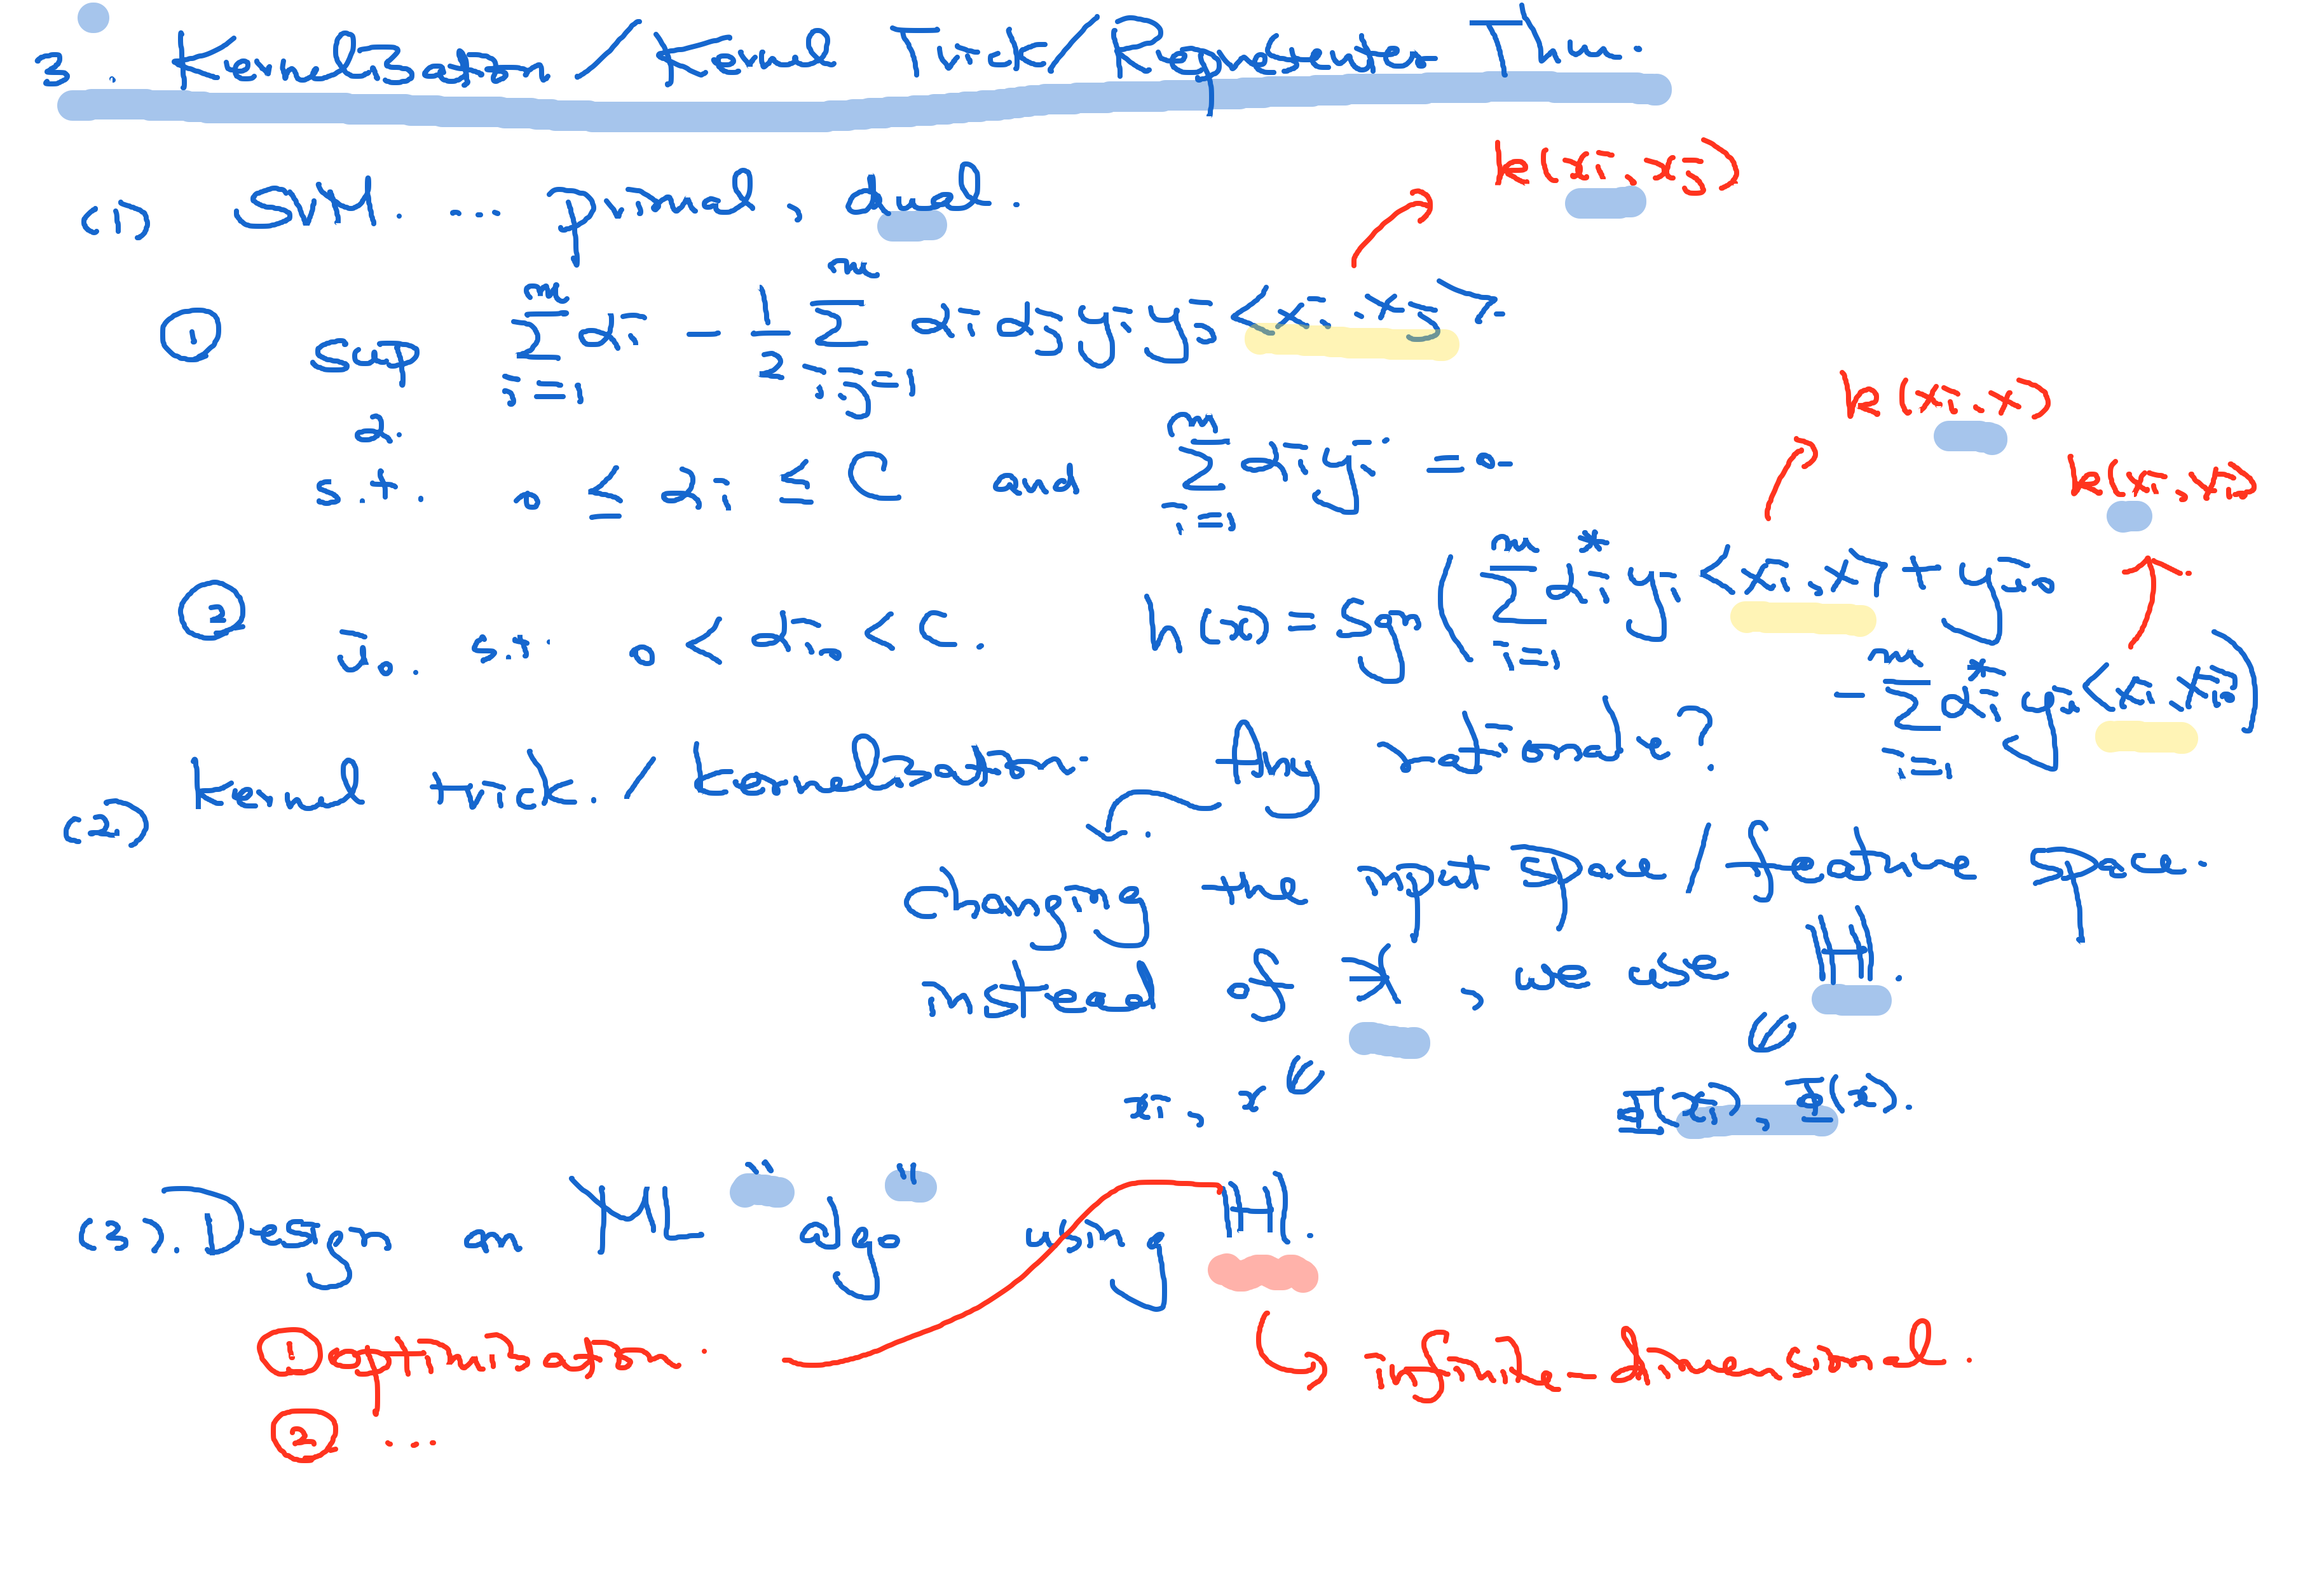 3. Kernelization / Kernel Trick / Representer Thm.
(1) SVM. ... primal, dual.
k(xi, xj)
① sup Σ_{i=1}^{m} αi - 1/2 Σ_{i,j=1}^{m} αi αj yi yj <xi, xj>
α.
s.t. 0 ≤ αi ≤ C and Σ_{i=1}^{m} αi yi = 0
k(xi, x)
k(xi, xi0)
② i0. s.t. 0 < αi0 < C. h(x) = sgn( Σ_{i=1}^{m} αi* yi <xi, x> + yi0
- Σ_{i=1}^{m} αi* yi <xi, xi0> )
(2) kernel trick. / kernelization. Any rationale?
Changing the input space / feature space.
instead of X, we use H.
xi, x ∈ Φ(xi), Φ(x).
(3). Design an ML "algo" using H.
① optimization. infinite-dimensional.
② ...